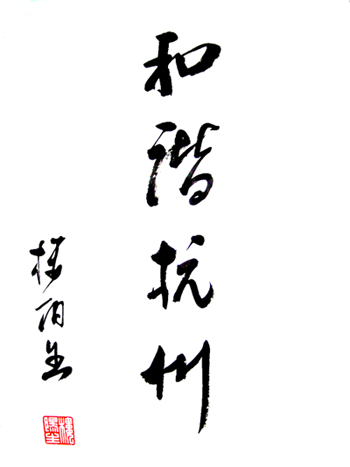 和谐杭州
楼阳生